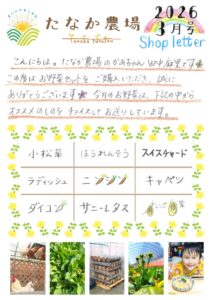 たなか農場
Tanaka Noujou
2026
3月号
Shop letter
こんにちは。たなか農場のかあちゃん 田中麻里です
この度はお野菜セットをご購入いただき、誠に
ありがとうございます 今月のお野菜は、下記の中から
オススメのものをチョイスしてお送りしています。
小松菜 ほうれんそう スイスチャード
ラディッシュ ニンジン キャベツ
ダイコン サニーレタス